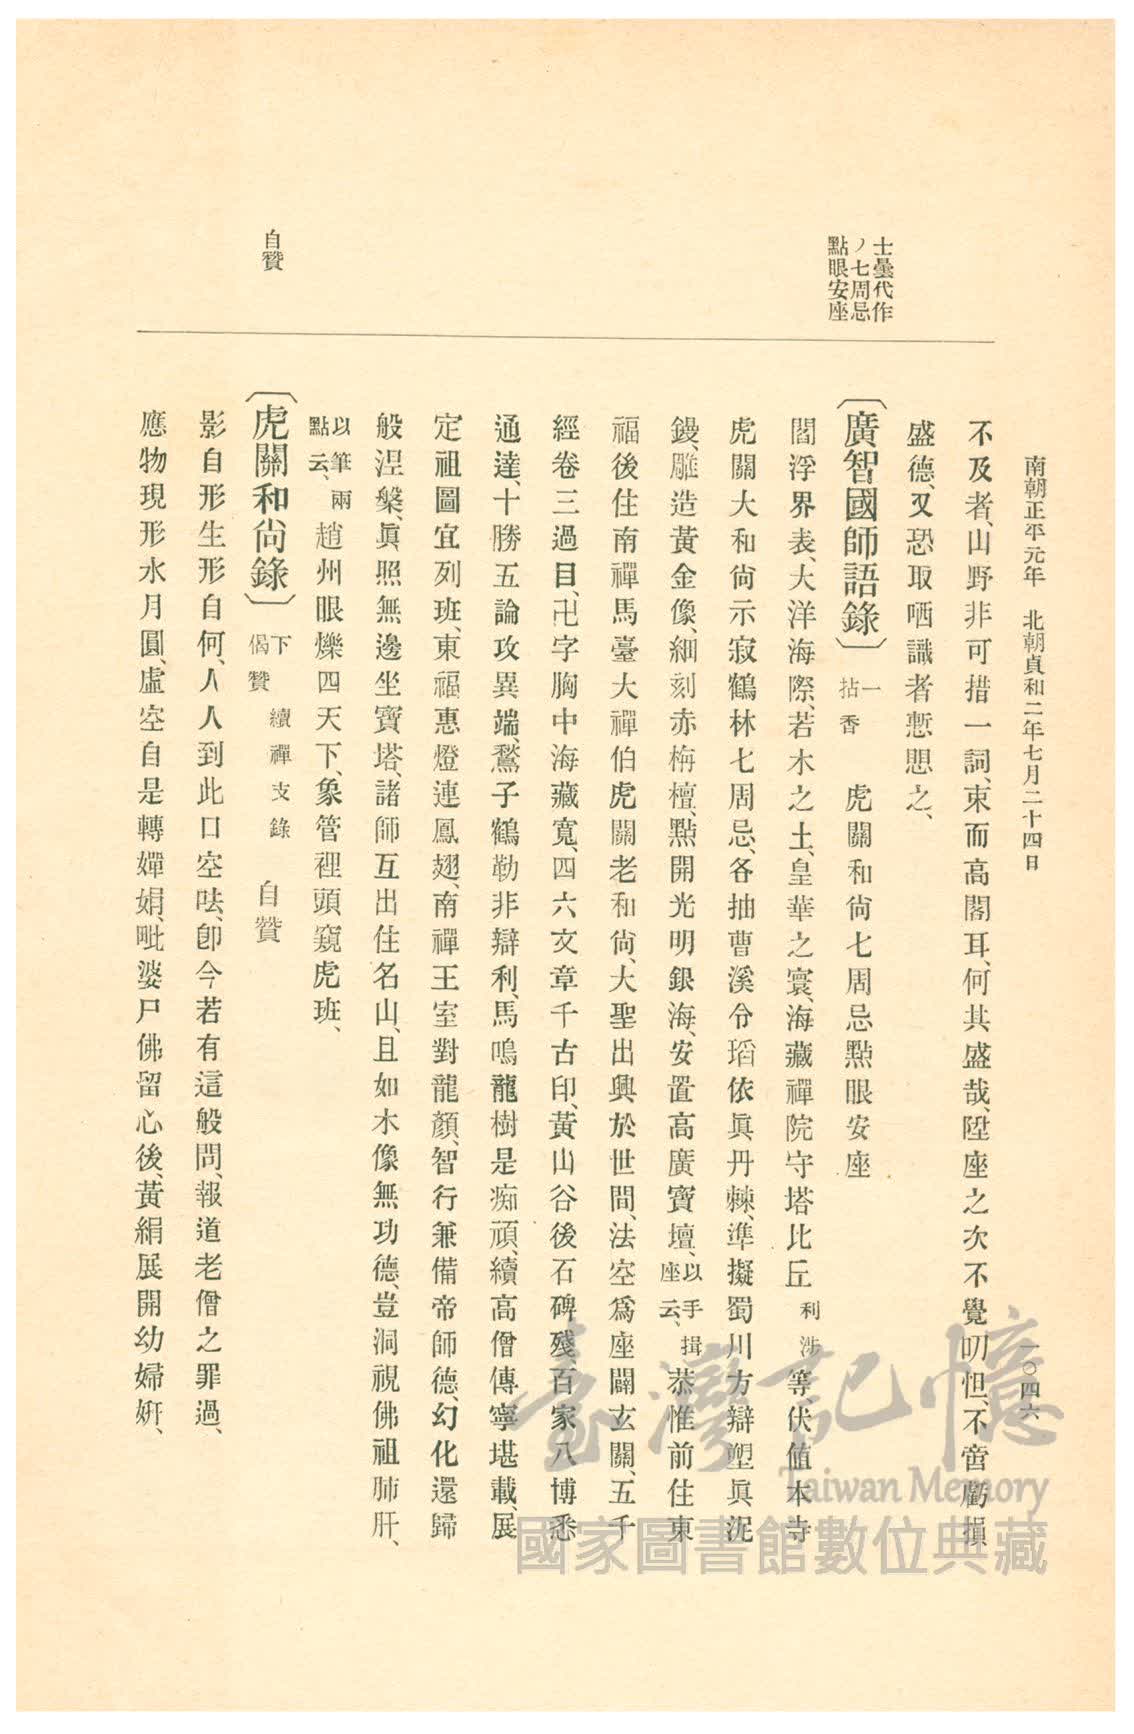 南朝正平元年　北朝貞和二年七月二十四日
一〇四六
士曇代作
ノ七周忌
點眼安座
自贊
不及者、山野非可措一詞、束而高閣耳、何其盛哉、陞座之次不覺叨怛、不啻虧損
盛德、又恐取哂識者慙思之、
〔廣智國師語錄〕一拈香　虎關和尙七周忌點眼安座
閻浮界表、大洋海際、若木之土、皇華之寰、海藏禪院守塔比丘利涉等、伏值本寺
虎關大和尙示寂鶴林七周忌、各抽曹溪令瑫依眞丹棘、準擬蜀川方辯塑眞泥
鏝、雕造黃金像、細刻赤栴檀、點開光明銀海、安置高廣寶壇、以手揖座云、恭惟前住東
福後住南禪馬臺大禪伯虎關老和尙、大聖出興於世間、法空爲座闢玄關、五千
經卷三過目、卍字胸中海藏寬、四六文章千古印、黃山谷後石碑殘、百家八博悉
通達、十勝五論攻異端、鶖子鶴勒非辯利、馬鳴龍樹是痴頑、續高僧傳寧堪載、展
定祖圖宜列班、東福惠燈連鳳翅、南禪王室對龍顏、智行兼備帝師德、幻化還歸
般涅槃、眞照無邊坐寶塔、諸師互出住名山、且如木像無功德、豈洞視佛祖肺肝、
以筆兩點云、趙州眼爍四天下、象管裡頭窺虎班、
〔虎關和尙錄〕下偈贊　續禪支錄　自贊
影自形生形自何、人人到此口空呿、卽今若有這般問、報道老僧之罪過、
應物現形水月圓、虛空自是轉嬋娟、毗婆尸佛留心後、黃絹展開幼婦姸、
臺灣記憶
Taiwan Memory
國家圖書館數位典藏